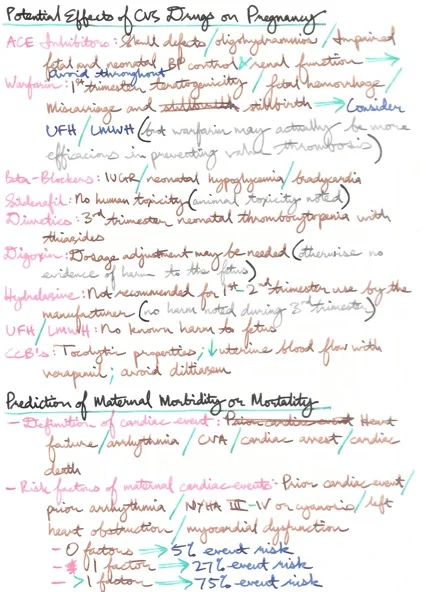 Potential Effects of CVS Drugs on Pregnancy
ACE Inhibitors: Skull defects/oligohydramnios/Impaired
fetal and neonatal BP control/renal function →
avoid throughout
Warfarin: 1st trimester teratogenicity/fetal hemorrhage/
Miscarriage and stillbirth → Consider
UFH/LMWH (but warfarin may actually be more
efficacious in preventing valve thrombosis)
Beta-Blockers: IUGR/neonatal hypoglycemia/bradycardia
Sildenafil: No human toxicity (animal toxicity noted)
Diuretics: 3rd trimester neonatal thrombocytopenia with
thiazides
Digoxin: Dosage adjustment may be needed (otherwise no
evidence of harm to the fetus)
Hydralazine: Not recommended for 1st-2nd trimester use by the
manufacturer (no harm noted during 3rd trimester)
UFH/LMWH: No known harm to fetus
CCB's: Tocolytic properties; ↓uterine blood flow with
verapamil; avoid diltiazem
Prediction of Maternal Morbidity or Mortality
- Definition of cardiac event: Prior cardiac event Heart
failure/arrhythmia/CVA/cardiac arrest/cardiac
death
- Risk factors of maternal cardiac events: Prior cardiac event/
prior arrhythmia/NYHA III-IV or cyanosis/left
heart obstruction/myocardial dysfunction
- 0 factors → 5% event risk
- 1 factor → 27% event risk
- >1 factor → 75% event risk